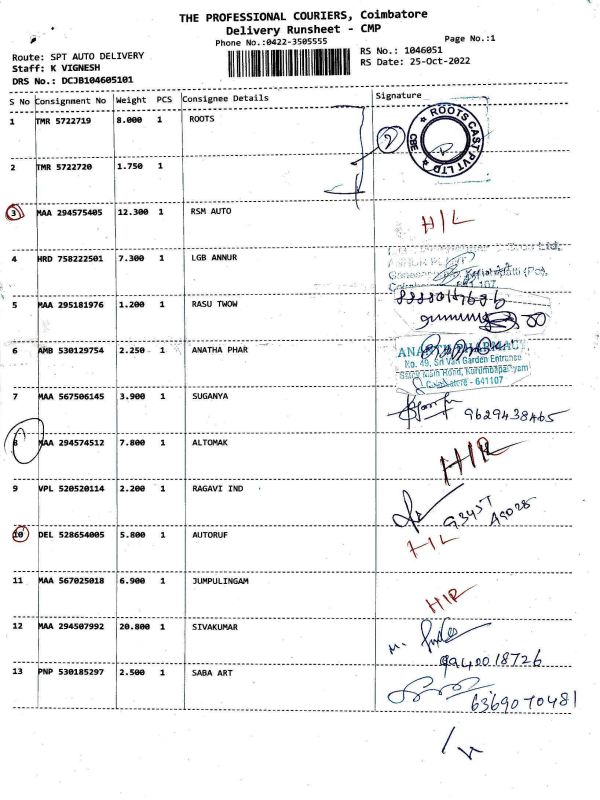 THE PROFESSIONAL COURIERS, Coimbatore
Delivery Runsheet - CMP
Phone No.:0422-3505555
Page No.:1
Route: SPT AUTO DELIVERY
RS No.: 1046051
Staff: K VIGNESH
RS Date: 25-Oct-2022
DRS No.: DCJB104605101
S No Consignment No Weight PCS Consignee Details Signature
1 TMR 5722719 8.000 1 ROOTS
ROOTS CAST PVT LTD CBE
2 TMR 5722720 1.750 1
3 MAA 294575405 12.300 1 RSM AUTO H/L
4 HRD 758222501 7.300 1 LGB ANNUR
641 107
5 MAA 295181976 1.200 1 RASU TWOW
6 AMB 530129754 2.250 1 ANATHA PHAR
No. 49, Sri Van Garden Entrance
Coimbatore - 641107
7 MAA 567506145 3.900 1 SUGANYA
9629438465
8 MAA 294574512 7.800 1 ALTOMAK H/R
9 VPL 520520114 2.200 1 RAGAVI IND
10 DEL 528654005 5.800 1 AUTORUF H/L
11 MAA 567025018 6.900 1 JUMPULINGAM H/R
12 MAA 294507992 20.800 1 SIVAKUMAR
9940018726
13 PNP 530185297 2.500 1 SABA ART
6369070481